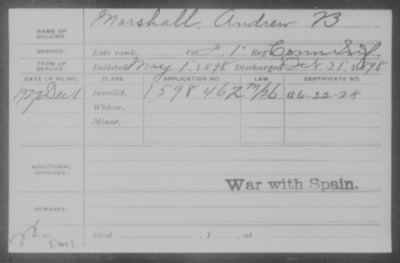 NAME OF SOLDIER: Marshall, Andrew B
SERVICE: Late rank, Co. I, 1" Reg't Conn Inf
TERM OF SERVICE: Enlisted May 1, 1898 Discharged Oct 31, 1898
DATE OF FILING. CLASS. APPLICATION NO. LAW. CERTIFICATE NO.
1927 Dec 1 Invalid, 1598462
Widow,
Minor,
ADDITIONAL SERVICES:
War with Spain.
REMARKS:
Died , 1 , at